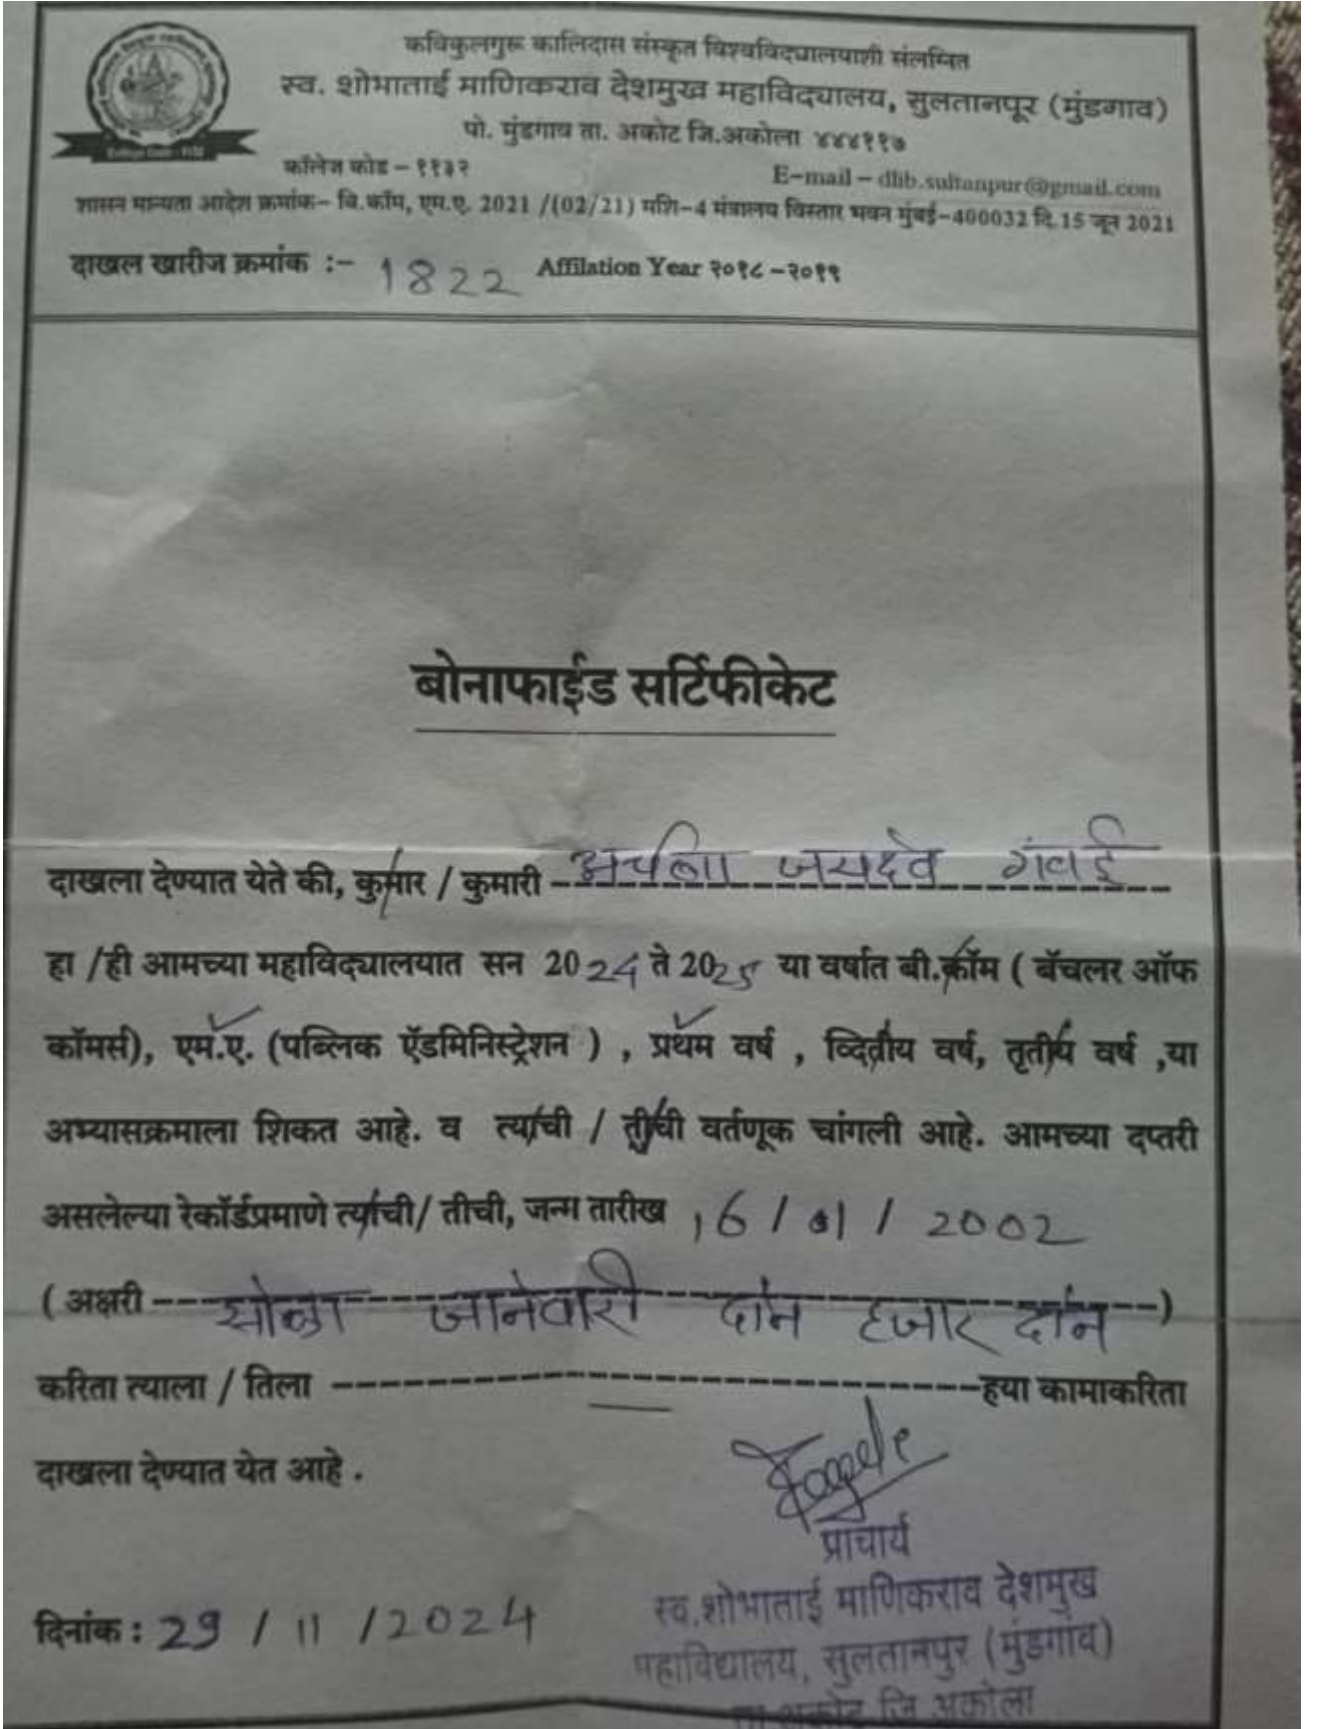 कविकुलगुरू कालिदास संस्कृत विश्वविद्यालयाशी संलग्नित
स्व. शोभाताई माणिकराव देशमुख महाविद्यालय, सुलतानपूर (मुंडगाव)
पो. मुंडगाव ता. अकोट जि.अकोला ४४४११७
कॉलेज कोड – ११३२
E-mail – dlib.sultanpur@gmail.com
शासन मान्यता आदेश क्रमांक– बि.कॉम, एम.ए. 2021 /(02/21) मशि-4 मंत्रालय विस्तार भवन मुंबई-400032 दि.15 जून 2021
दाखल खारीज क्रमांक :- 1822 Affilation Year २०१८-२०१९
बोनाफाईड सर्टिफीकेट
दाखला देण्यात येते की, कुमार / कुमारी अर्चना जयदेव गवई
हा /ही आमच्या महाविद्यालयात सन 2024 ते 2025 या वर्षात बी.कॉम ( बॅचलर ऑफ
कॉमर्स), एम.ए. (पब्लिक ऍडमिनिस्ट्रेशन ) , प्रथम वर्ष , व्दितीय वर्ष, तृतीय वर्ष ,या
अभ्यासक्रमाला शिकत आहे. व त्यांची / तीची वर्तणूक चांगली आहे. आमच्या दप्तरी
असलेल्या रेकॉर्डप्रमाणे त्यांची/ तीची, जन्म तारीख 16 / 01 / 2002
( अक्षरी सोळा जानेवारी दोन हजार दोन )
करिता त्याला / तिला — हया कामाकरिता
दाखला देण्यात येत आहे .
प्राचार्य
स्व.शोभाताई माणिकराव देशमुख
दिनांक : 29 / 11 / 2024
महाविद्यालय, सुलतानपुर (मुंडगांव)
ता.अकोट जि अकोला